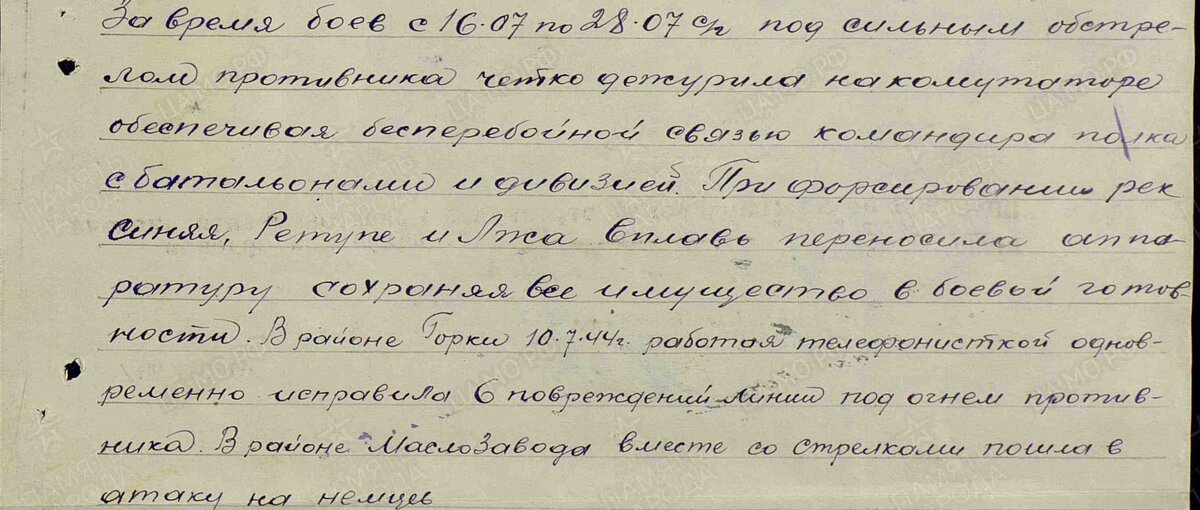 За время боев с 16.07 по 28.07 с/г под сильным обстре-
лом противника четко дежурила на комутаторе
обеспечивая бесперебойной связью командира полка
с батальонами и дивизией. При форсировании рек
синяя, Ретупе и Лжа вплавь переносила аппа-
ратуру сохраняя все имущество в боевой готов-
ности. В районе Горки 10.7.44г. работая телефонисткой однов-
ременно исправила 6 повреждений линии под огнем против-
ника. В районе МаслоЗавода вместе со стрелками пошла в
атаку на немцев